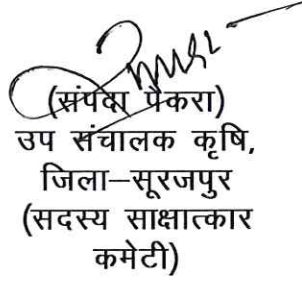 (संपदा पैकरा)
उप संचालक कृषि,
जिला–सूरजपुर
(सदस्य साक्षात्कार
कमेटी)